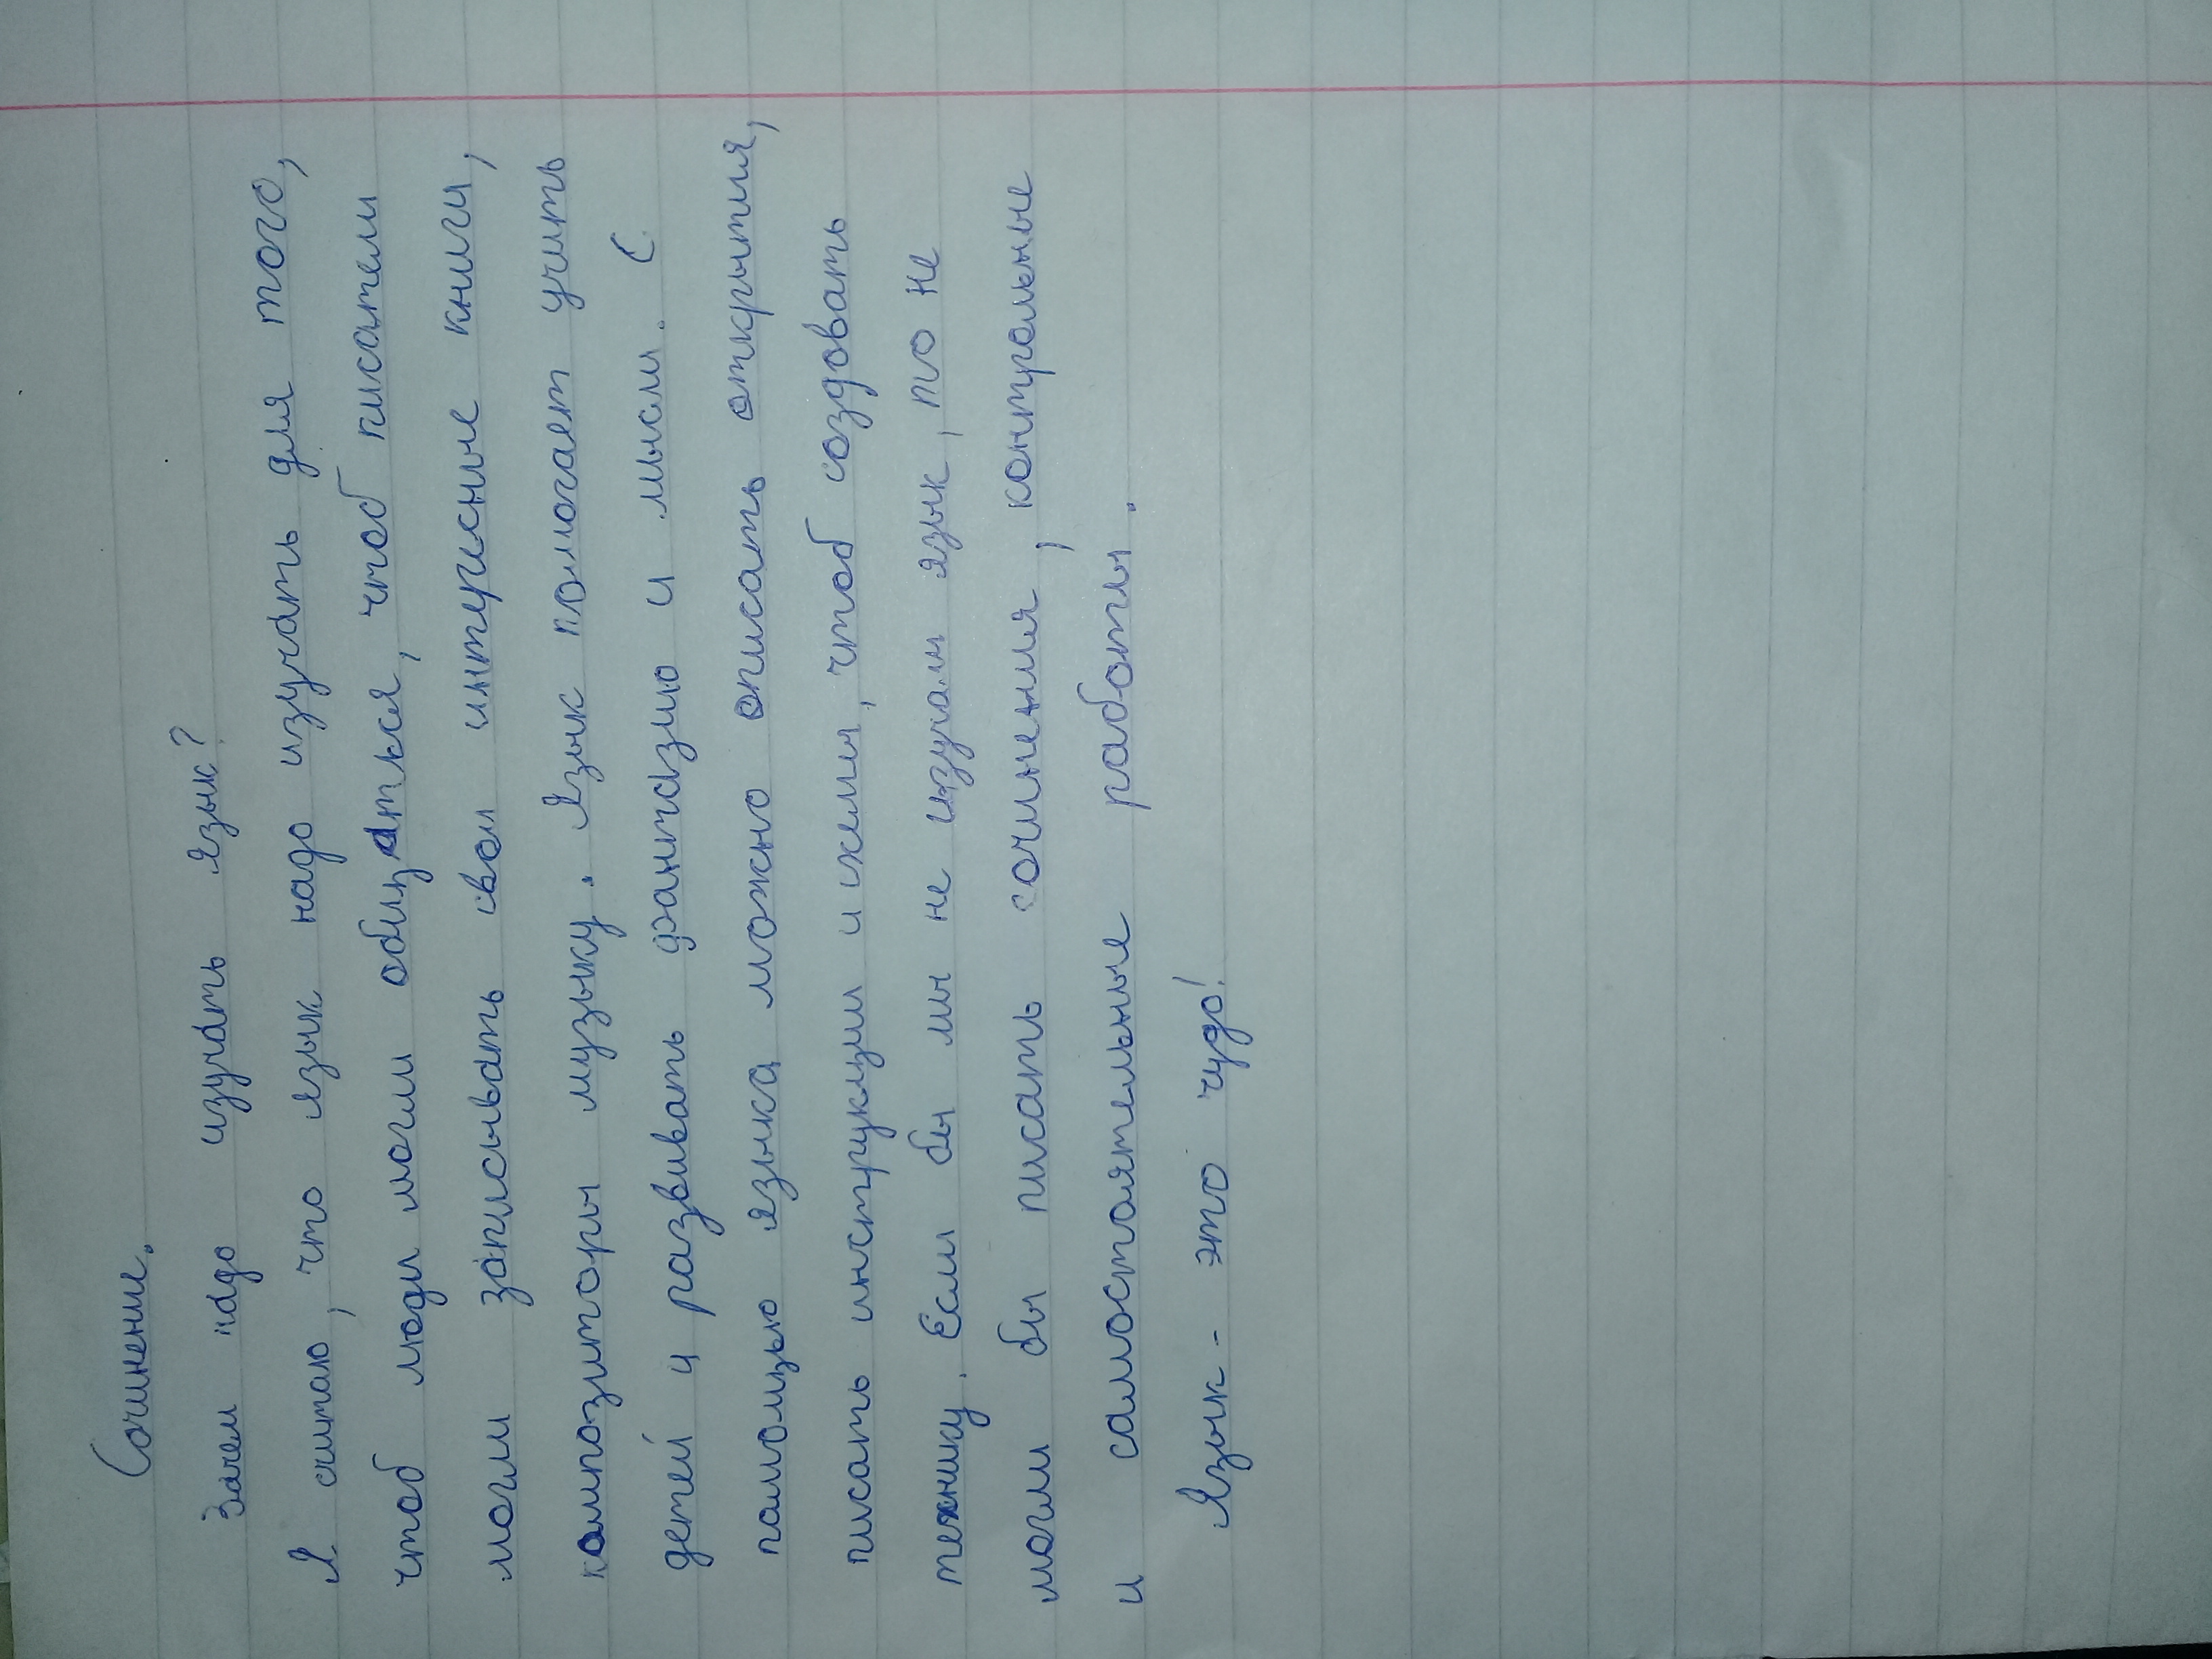 Сочинение.
Зачем надо изучать язык?
Я считаю, что язык надо изучать для того,
чтоб люди могли общаться, чтоб писатели
могли записывать свои интуресные книги,
композиторы музыку. Язык помогает учить
детей и развивать фантазию и мысли. С
помощью языка можно описать открытия,
писать инструкции и схемы, чтоб создовать
технику. Если бы мы не изучали язык, то не
могли бы писать сочинения, контрольные
и самостоятельные работы.
Язык - это чудо!